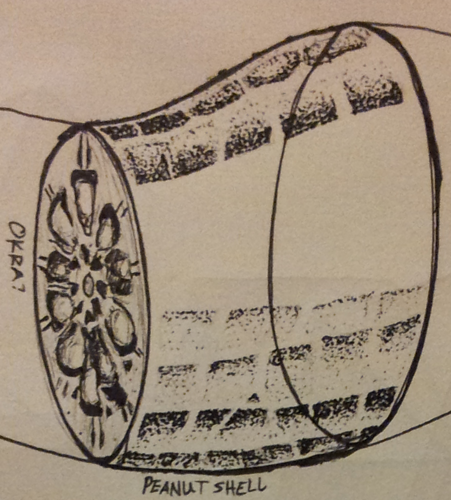 OKRA?
PEANUT SHELL